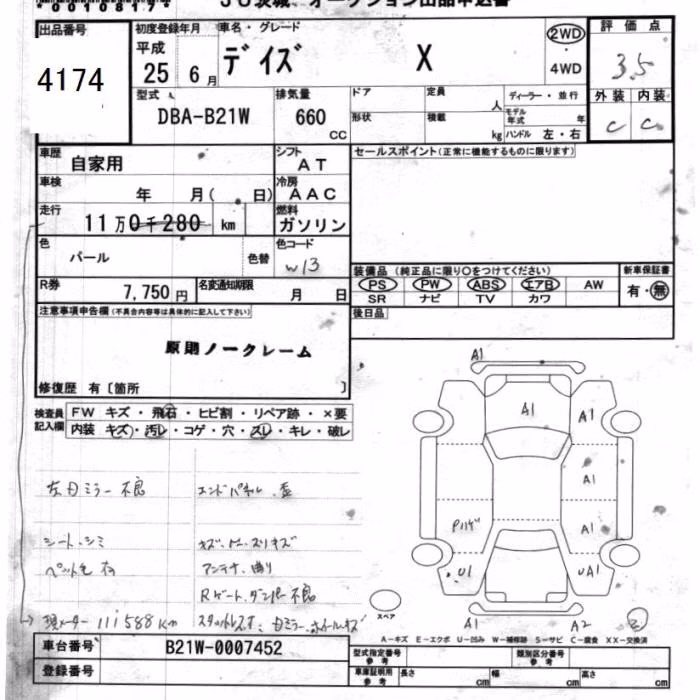 *00108177*
JU茨城 オークション出品申込書
出品番号
4174
初度登録年月
平成
25 6月
車名・グレード
デイズ X
2WD
4WD
評価点
3.5
外装 内装
C C
型式
DBA-B21W
排気量
660
CC
ドア 定員 人
形状 積載 kg
ディーラー・並行
モデル年式 年
ハンドル 左・右
車歴
自家用
シフト
AT
セールスポイント(正常に機能するものに限ります)
車検
年 月( 日)
冷房
AAC
走行
11万0千280 km
燃料
ガソリン
色
パール
色替
色コード
W13
装備品(純正品に限り○をつけてください)
新車保証書
PS PW ABS エアB AW
有・無
SR ナビ TV カワ
R券
7,750円
名変通知期限
月 日
後日品
注意事項申告欄(不具合内容等は具体的に記入して下さい)
原則ノークレーム
修復歴 有〔箇所 〕
検査員記入欄
FW キズ・飛石・ヒビ割・リペア跡・×要
内装 キズ・汚レ・コゲ・穴・スレ・キレ・破レ
左右ミラー不良
エンドパネル
シート、シミ
ペット毛有
アンテナ、曲り
Rゲートダンパー不良
現メーター 111588Km
A1
A1
A1
A1
A1
Pハゲ
U1
UA1
スペア
A1
A2
A－キズ E－エクボ U－凹み W－補修跡 S－サビ C－腐食 XX－交換済
車台番号
B21W-0007452
登録番号
型式指定番号
参考
類別区分番号
参考
車庫証明用
参考
長さ cm 幅 cm 高さ cm